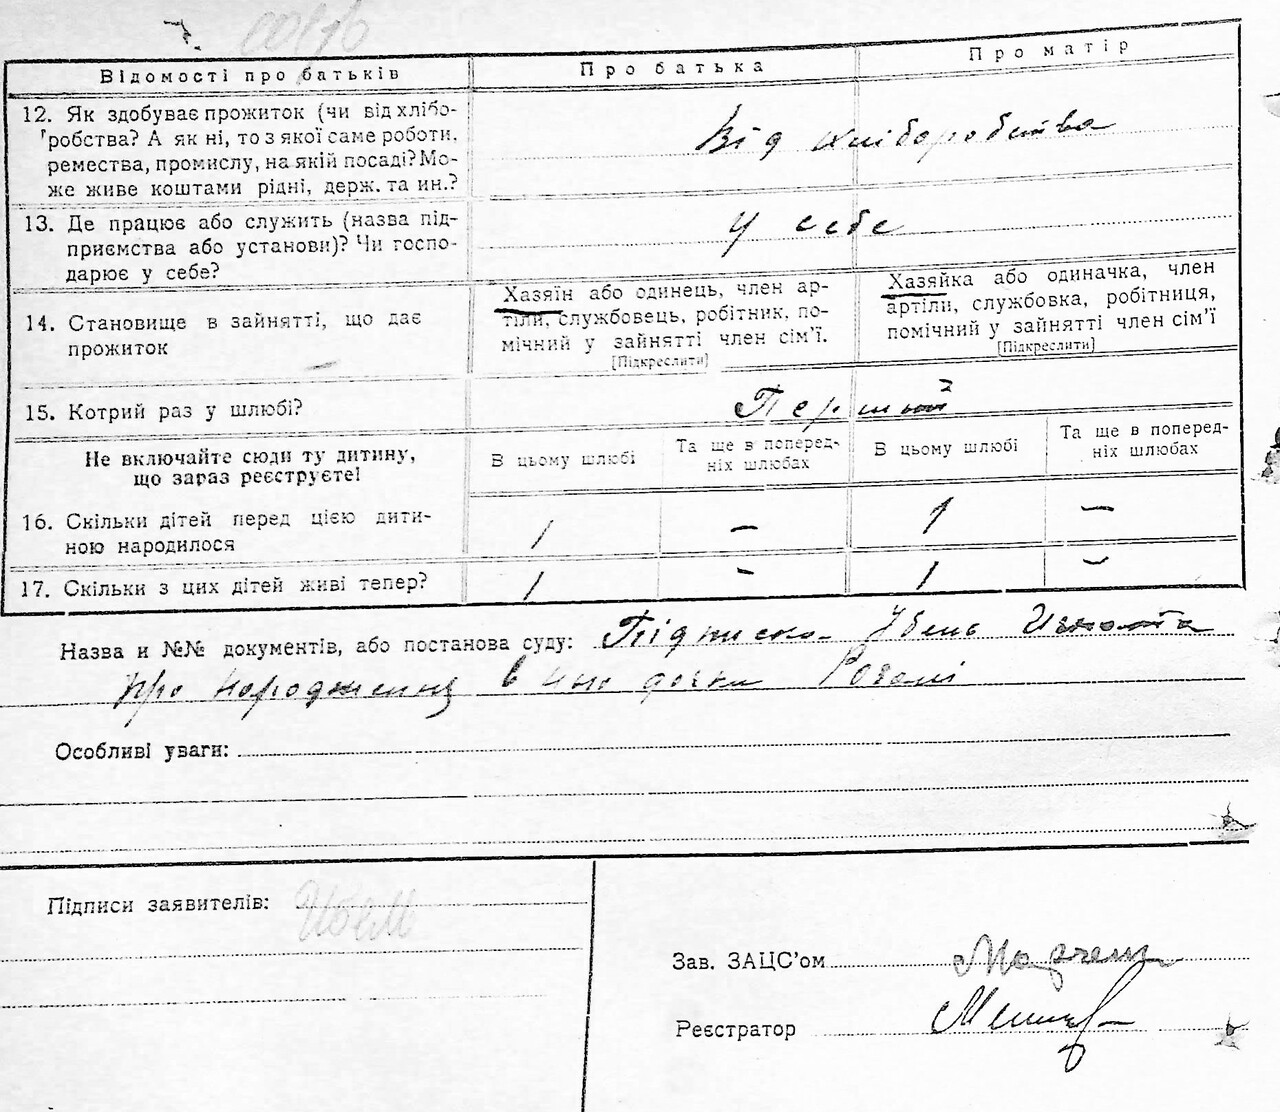 Відомості про батьків
Про батька
Про матір
12. Як здобуває прожиток (чи від хлібо-
робства? А як ні, то з якої саме роботи,
ремества, промислу, на якій посаді? Мо-
же живе коштами рідні, держ. та ин.?
Від хліборобства
13. Де працює або служить (назва під-
приємства або установи)? Чи госпо-
дарює у себе?
у себе
14. Становище в зайнятті, що дає
прожиток
Хазяїн або одинець, член ар-
тіли, службовець, робітник, по-
мічний у зайнятті член сім'ї.
[Підкреслити]
Хазяйка або одиначка, член
артіли, службовка, робітниця,
помічний у зайнятті член сім'ї
[Підкреслити]
15. Котрий раз у шлюбі?
Перший
Не включайте сюди ту дитину,
що зараз реєструєте!
В цьому шлюбі
Та ще в поперед-
ніх шлюбах
В цьому шлюбі
Та ще в поперед-
ніх шлюбах
16. Скільки дітей перед цією дити-
ною народилося
1 – 1 –
17. Скільки з цих дітей живі тепер?
1 – 1 –
Назва и №№ документів, або постанова суду: Підписка
про народження в дочки
Особливі уваги:
Підписи заявителів:
Зав. ЗАЦС'ом
Реєстратор